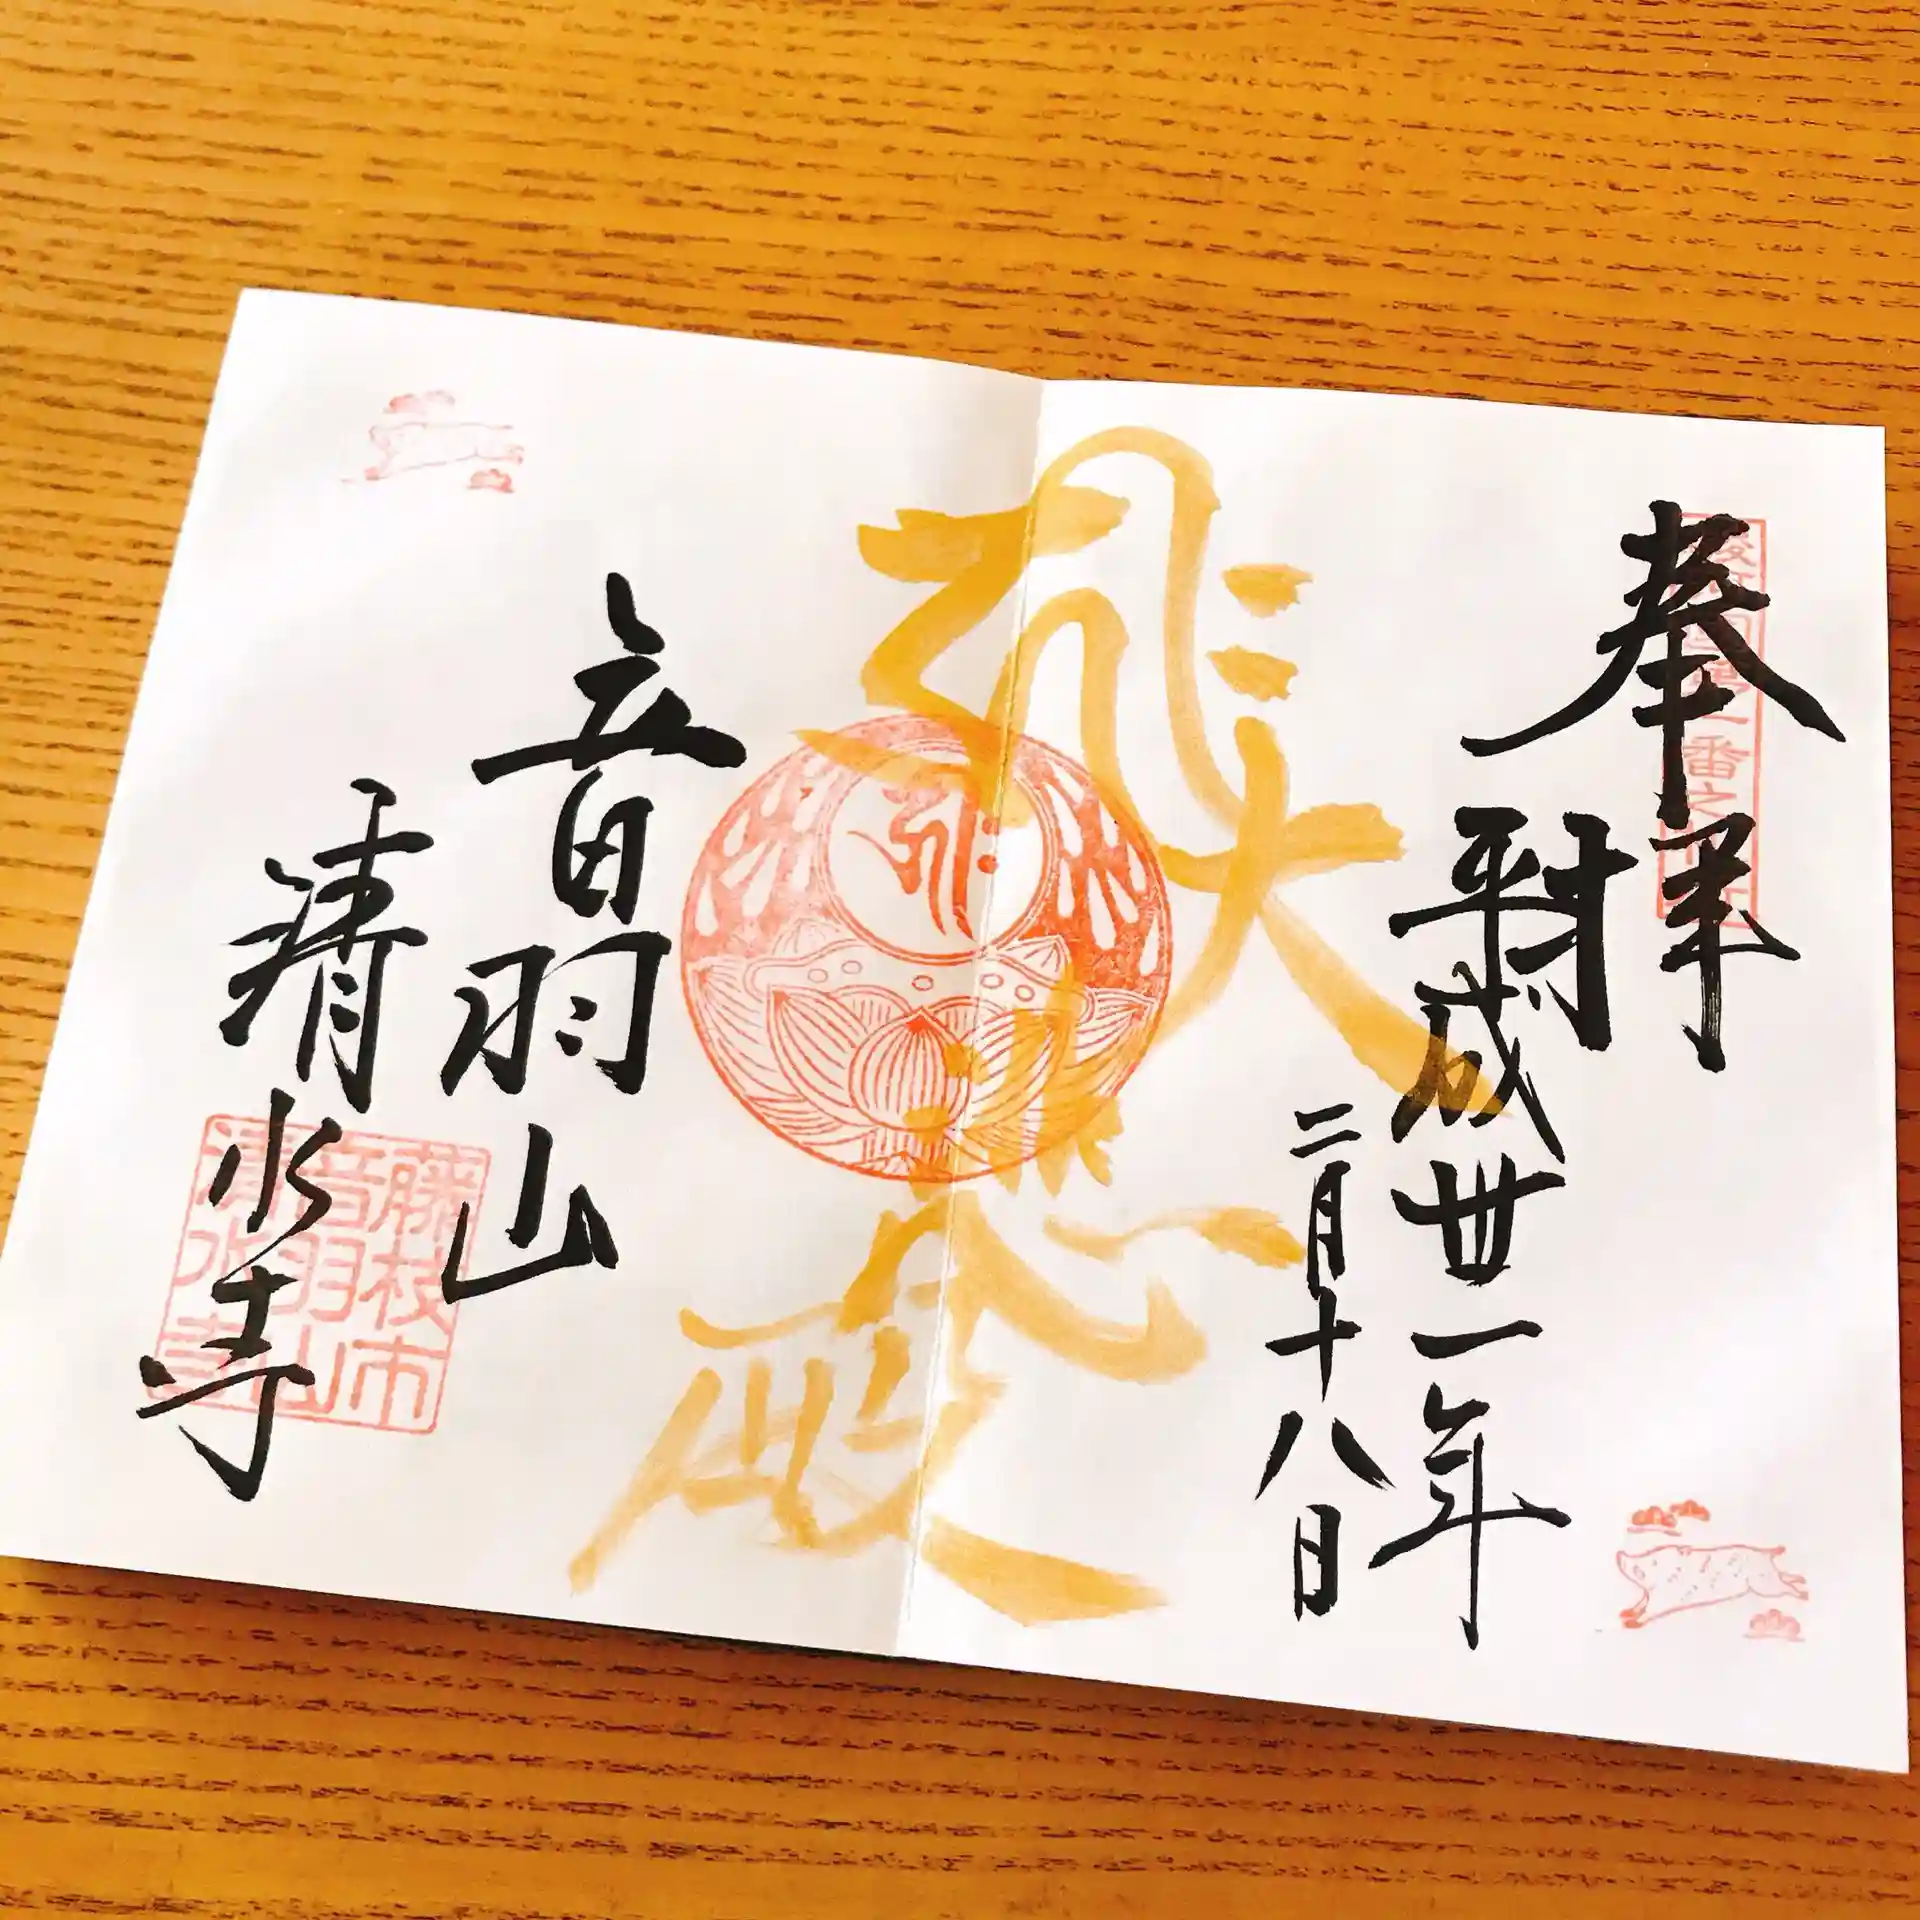 奉拝
平成丗一年
二月十八日
大悲殿
音羽山
清水寺
藤枝市
音羽山
清水寺